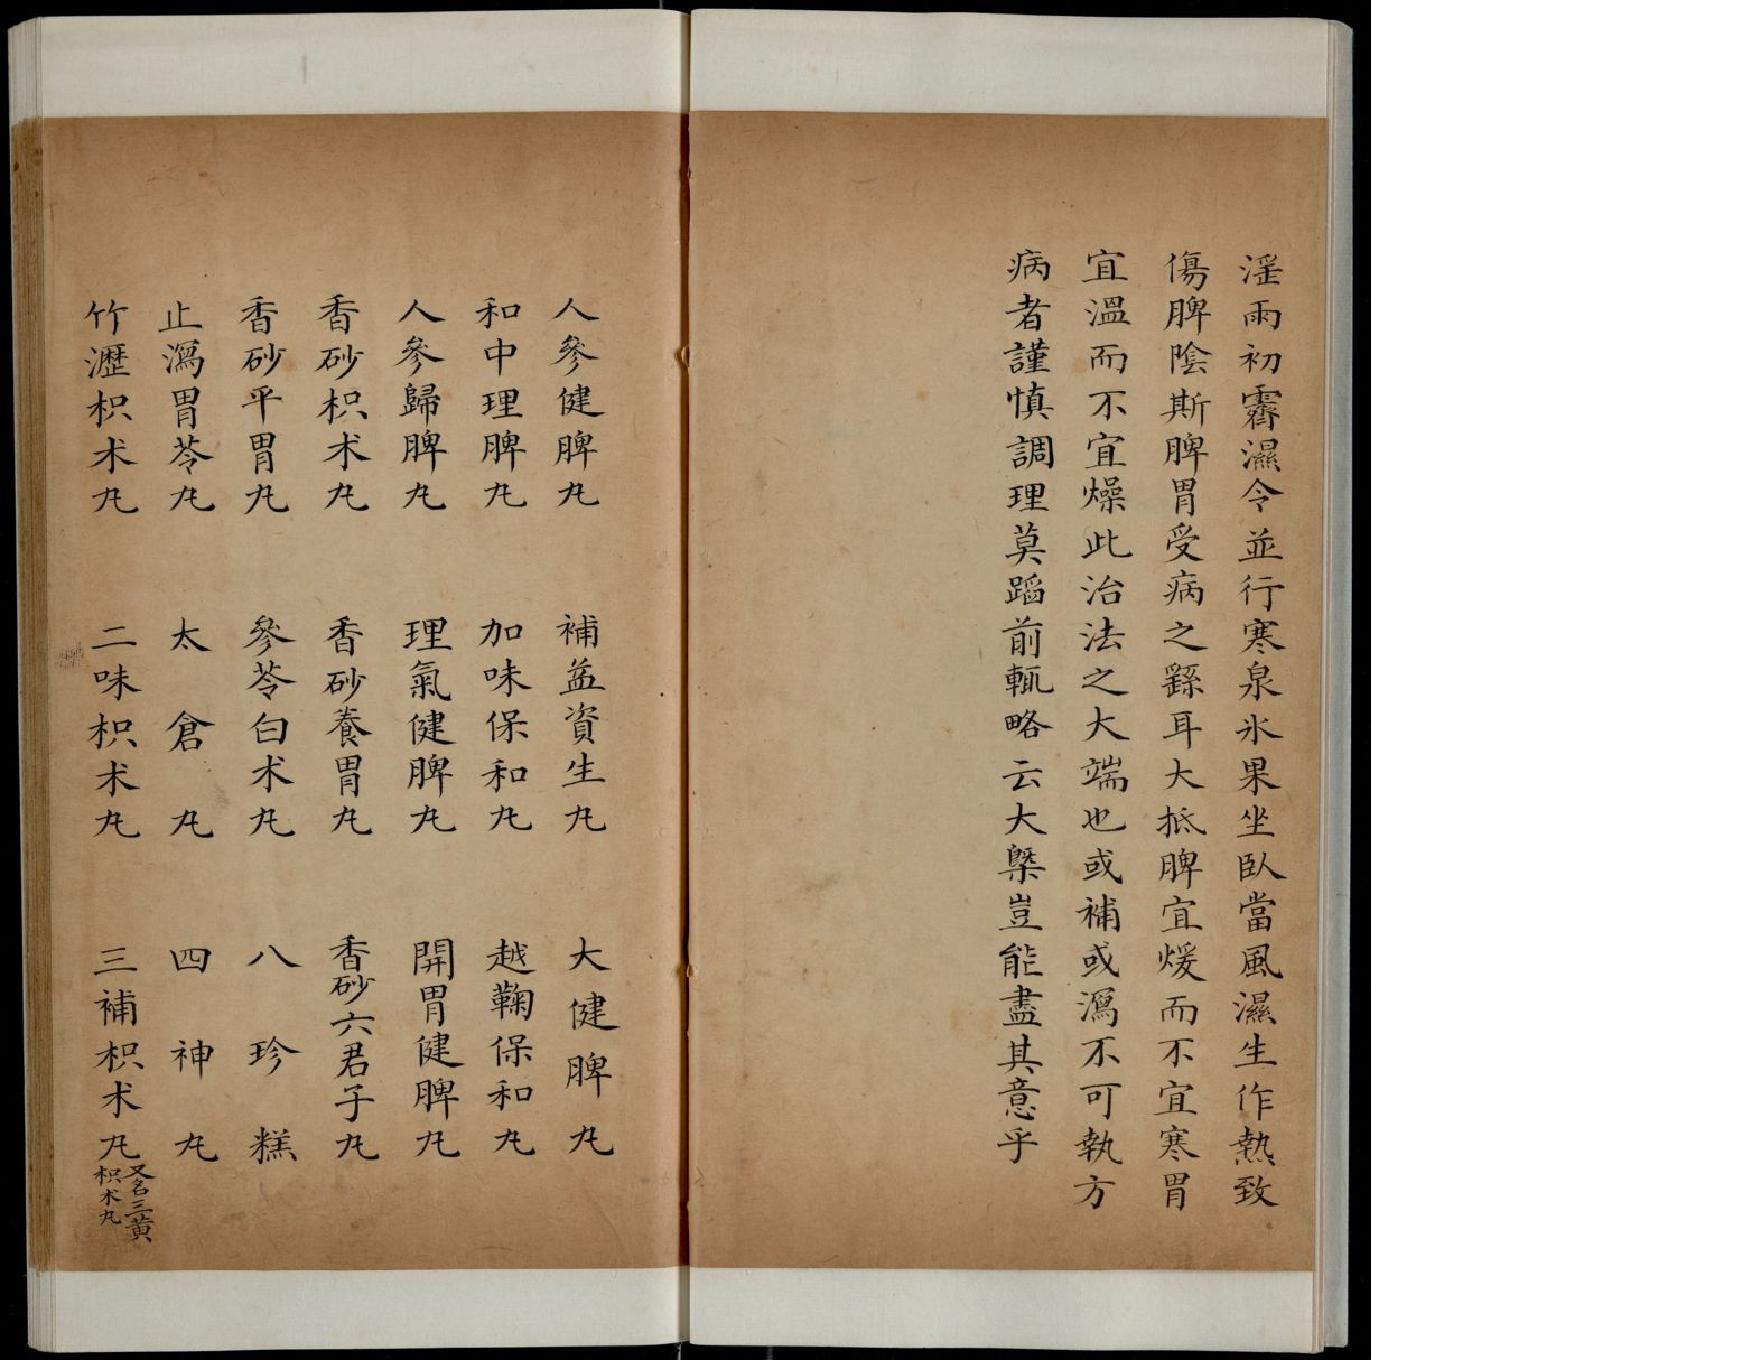 淫雨初霽濕令並行寒泉氷果坐臥當風濕生作熱致
傷脾陰斯脾胃受病之繇耳大抵脾宜煖而不宜寒胃
宜溫而不宜燥此治法之大端也或補或瀉不可執方
病者謹慎調理莫蹈前輒略云大槩豈能盡其意乎
人參健脾丸　補益資生丸　大健脾丸
和中理脾丸　加味保和丸　越鞠保和丸
人參歸脾丸　理氣健脾丸　開胃健脾丸
香砂枳朮丸　香砂養胃丸　香砂六君子丸
香砂平胃丸　參苓白朮丸　八珍糕
止瀉胃苓丸　太倉丸　四神丸
竹瀝枳朮丸　二味枳朮丸　三補枳朮丸又名三黃枳朮丸